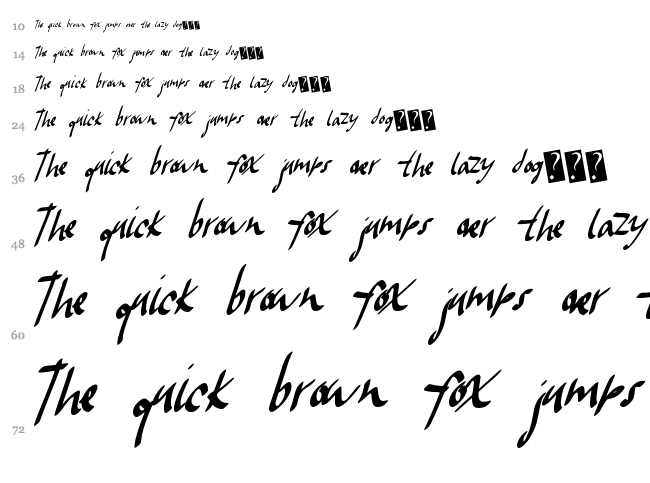 10 The quick brown fox jumps over the lazy dog???
14 The quick brown fox jumps over the lazy dog???
18 The quick brown fox jumps over the lazy dog???
24 The quick brown fox jumps over the lazy dog???
36 The quick brown fox jumps over the lazy dog???
48 The quick brown fox jumps over the lazy
60 The quick brown fox jumps over t
72 The quick brown fox jumps